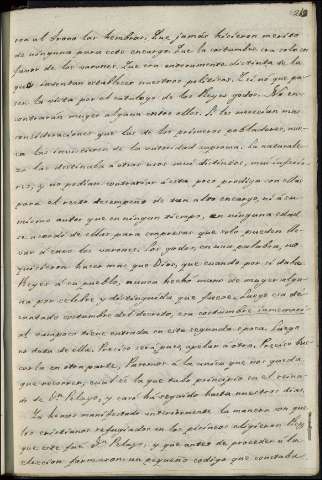 con al trono las hembras. Que jamás hicieron merito
de ninguna para este encargo. Que la costumbre era solo en
favor de los varones. Que era enteramente distinta de la
que intentan establecer nuestros politicos. Y si no que pa-
sen la vista por el catalogo de los Reyes godos. No en-
contrarán muger alguna entre ellos. A las mas
consideraciones que las de los primeros pobladores, nun-
ca las invistieron de la autoridad suprema. La naturale-
za las destinaba á otros usos mui distintos, mui inferio-
res, y no podian contrariar á esta poco prodiga con ellas
para el recto desempeño de tan alto encargo, ni á su
mismo autor que en ningun tiempo, en ninguna edad
se acordó de ellas para empresas que solo pueden lle-
var á cavo los varones. Los godos, en una palabra, no
quisieron hacer mas que Dios, que cuando por sí daba
Reyes á su pueblo, nunca hecho mano de muger algu-
na por celebre y distinguida que fuese. Luego esa de-
cantada costumbre del decreto, esa costumbre inmemori-
al tampoco tiene entrada en esta segunda época. Luego
no data de ella. Preciso será pues, apelar á otra. Preciso bus-
carla en otra parte. Pasemos á la unica que nos queda
que recorrer, cual es la que tubo principio en el reina-
do de Dn. Pelayo, y casi ha seguido hasta nuestros dias.
Ya hemos manifestado anteriormente la manera con que
los cristianos refugiados en los pirineos eligieron Rey,
que este fué Dn. Pelayo; y que antes de proceder á la
eleccion formaron un pequeño codigo que constaba